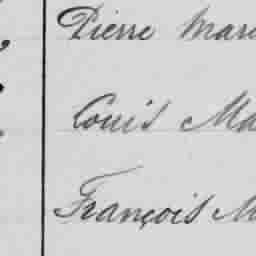 Pierre Mari
Louis Ma
François M